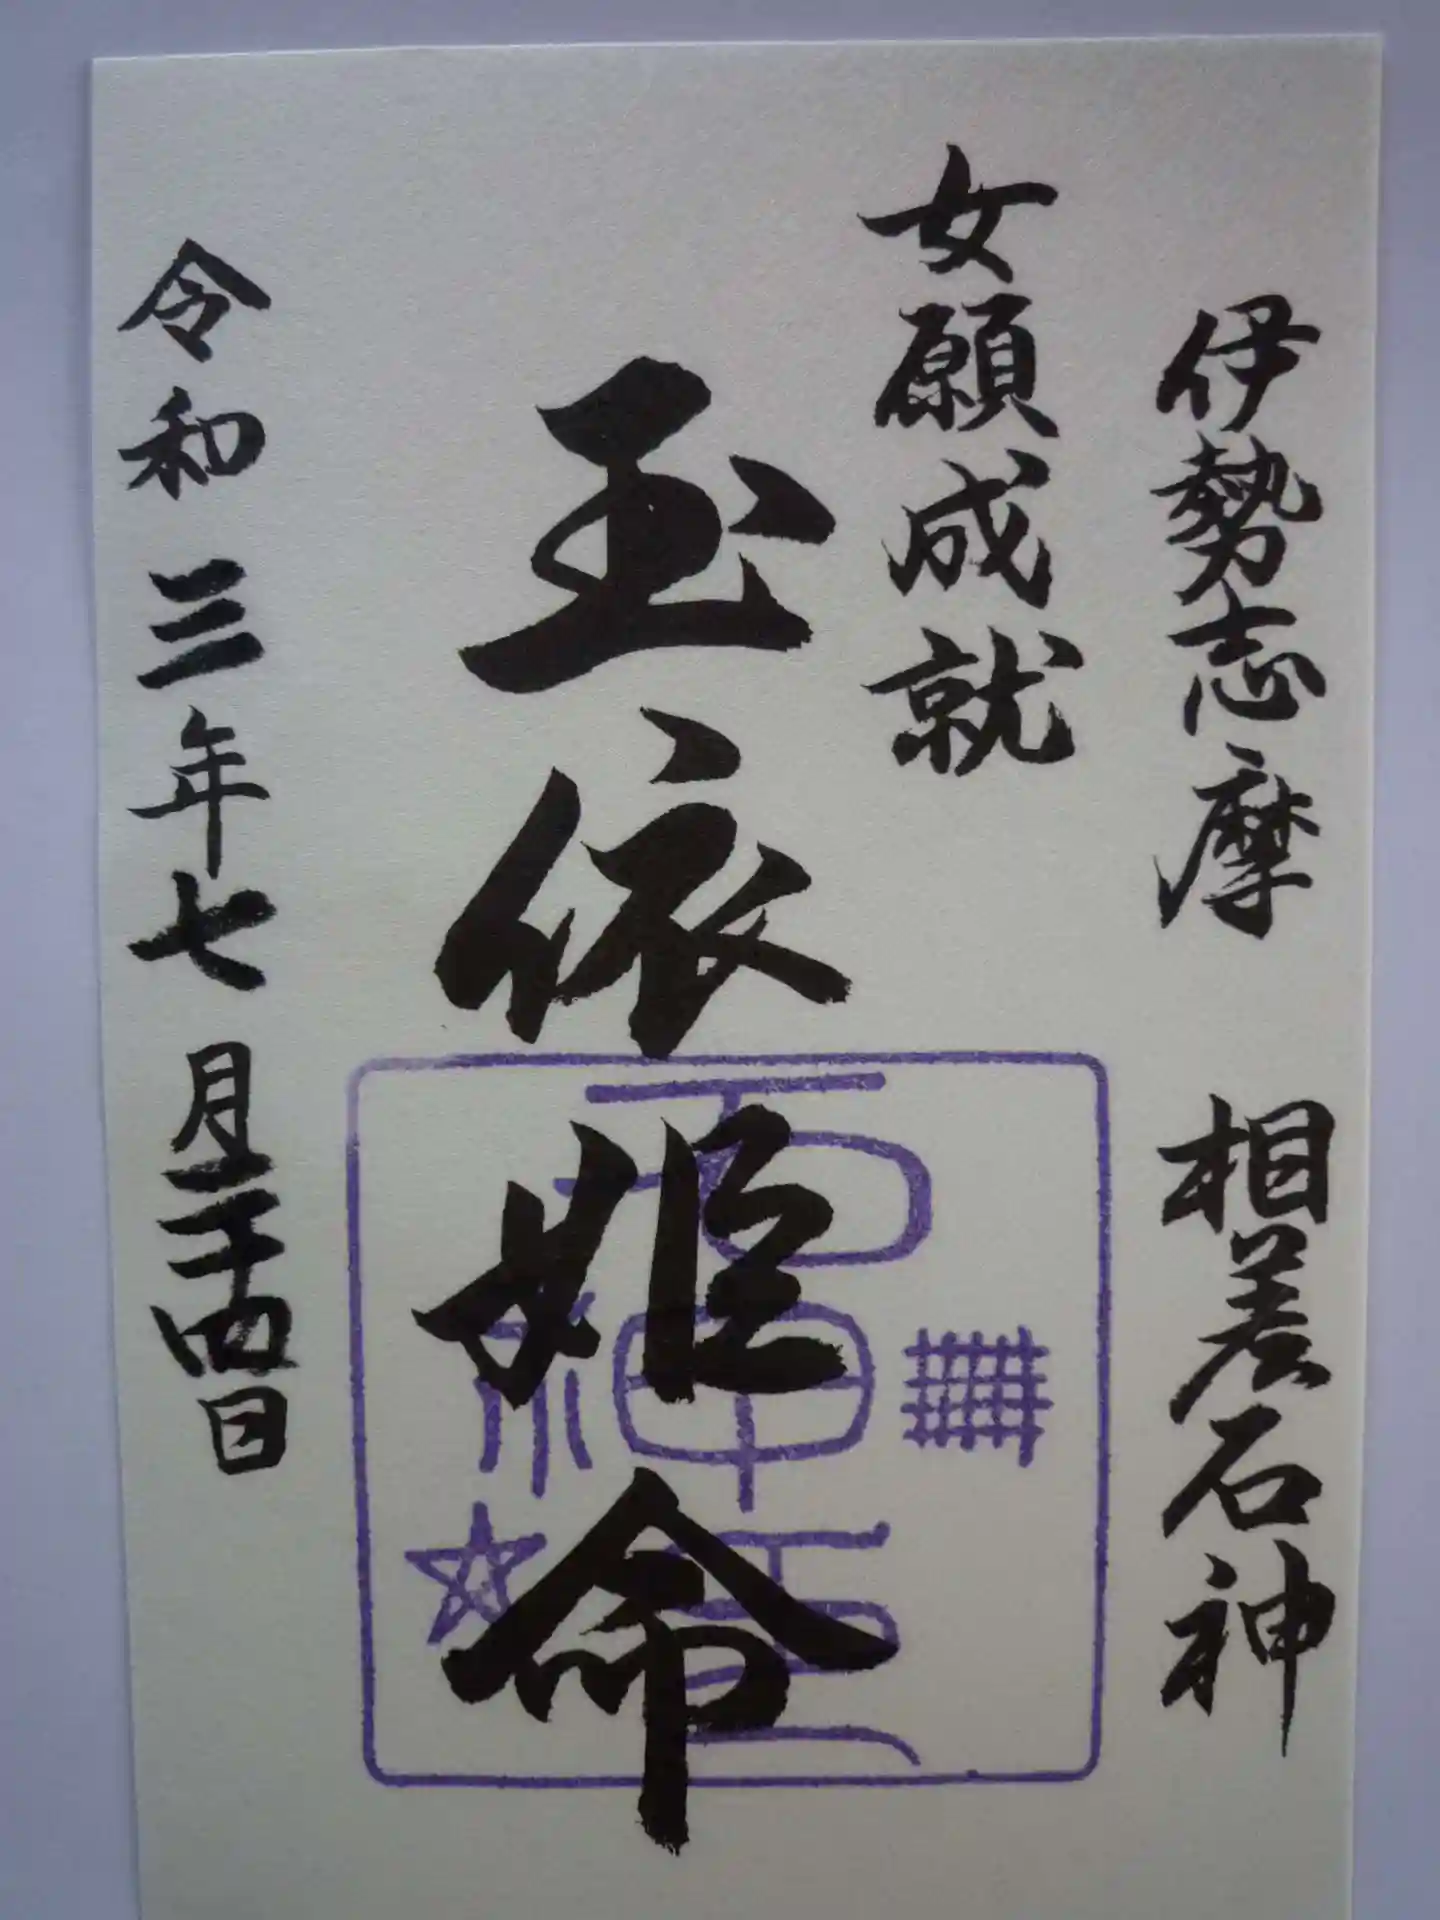 伊勢志摩 相差石神
女願成就
玉依姫命
石神玉
令和三年七月二十四日